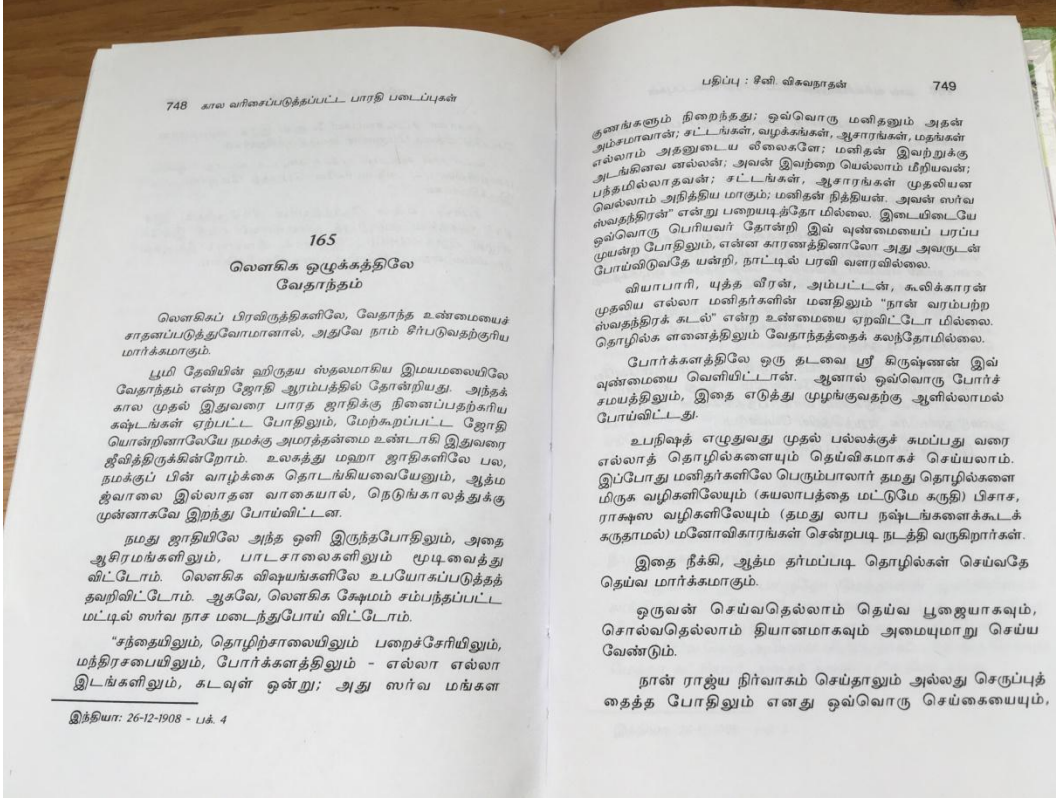 748 கால வரிசைப்படுத்தப்பட்ட பாரதி படைப்புகள்
165
லௌகிக ஒழுக்கத்திலே
வேதாந்தம்
லௌகிகப் பிரவிருத்திகளிலே, வேதாந்த உண்மையைச்
சாதனப்படுத்துவோமானால், அதுவே நாம் சீர்படுவதற்குரிய
மார்க்கமாகும்.
பூமி தேவியின் ஹிருதய ஸ்தலமாகிய இமயமலையிலே
வேதாந்தம் என்ற ஜோதி ஆரம்பத்தில் தோன்றியது. அந்தக்
கால முதல் இதுவரை பாரத ஜாதிக்கு நினைப்பதற்கரிய
கஷ்டங்கள் ஏற்பட்ட போதிலும், மேற்கூறப்பட்ட ஜோதி
யொன்றினாலேயே நமக்கு அமரத்தன்மை உண்டாகி இதுவரை
ஜீவித்திருக்கின்றோம். உலகத்து மஹா ஜாதிகளிலே பல,
நமக்குப் பின் வாழ்க்கை தொடங்கியவையேனும், ஆத்ம
ஜ்வாலை இல்லாதன வாகையால், நெடுங்காலத்துக்கு
முன்னாகவே இறந்து போய்விட்டன.
நமது ஜாதியிலே அந்த ஒளி இருந்தபோதிலும், அதை
ஆசிரமங்களிலும், பாடசாலைகளிலும் மூடிவைத்து
விட்டோம். லௌகிக விஷயங்களிலே உபயோகப்படுத்தத்
தவறிவிட்டோம். ஆகவே, லௌகிக க்ஷேமம் சம்பந்தப்பட்ட
மட்டில் ஸர்வ நாச மடைந்துபோய் விட்டோம்.
"சந்தையிலும், தொழிற்சாலையிலும் பறைச்சேரியிலும்,
மந்திரசபையிலும், போர்க்களத்திலும் - எல்லா எல்லா
இடங்களிலும், கடவுள் ஒன்று; அது ஸர்வ மங்கள
இந்தியா: 26-12-1908 - பக். 4
பதிப்பு : சீனி. விசுவநாதன் 749
குணங்களும் நிறைந்தது; ஒவ்வொரு மனிதனும் அதன்
அம்சமாவான்; சட்டங்கள், வழக்கங்கள், ஆசாரங்கள், மதங்கள்
எல்லாம் அதனுடைய லீலைகளே; மனிதன் இவற்றுக்கு
அடங்கினவ னல்லன்; அவன் இவற்றை யெல்லாம் மீறியவன்;
பந்தமில்லாதவன்; சட்டங்கள், ஆசாரங்கள் முதலியன
வெல்லாம் அநித்திய மாகும்; மனிதன் நித்தியன். அவன் ஸர்வ
ஸ்வதந்திரன்" என்று பறையடித்தோ மில்லை. இடையிடையே
ஒவ்வொரு பெரியவர் தோன்றி இவ் வுண்மையைப் பரப்ப
முயன்ற போதிலும், என்ன காரணத்தினாலோ அது அவருடன்
போய்விடுவதே யன்றி, நாட்டில் பரவி வளரவில்லை.
வியாபாரி, யுத்த வீரன், அம்பட்டன், கூலிக்காரன்
முதலிய எல்லா மனிதர்களின் மனதிலும் "நான் வரம்பற்ற
ஸ்வதந்திரக் கடல்" என்ற உண்மையை ஏறவிட்டோ மில்லை.
தொழில்க ளனைத்திலும் வேதாந்தத்தைக் கலந்தோமில்லை.
போர்க்களத்திலே ஒரு தடவை ஸ்ரீ கிருஷ்ணன் இவ்
வுண்மையை வெளியிட்டான். ஆனால் ஒவ்வொரு போர்ச்
சமயத்திலும், இதை எடுத்து முழங்குவதற்கு ஆளில்லாமல்
போய்விட்டது.
உபநிஷத் எழுதுவது முதல் பல்லக்குச் சுமப்பது வரை
எல்லாத் தொழில்களையும் தெய்விகமாகச் செய்யலாம்.
இப்போது மனிதர்களிலே பெரும்பாலார் தமது தொழில்களை
மிருக வழிகளிலேயும் (சுயலாபத்தை மட்டுமே கருதி) பிசாச,
ராக்ஷஸ வழிகளிலேயும் (தமது லாப நஷ்டங்களைக்கூடக்
கருதாமல்) மனோவிகாரங்கள் சென்றபடி நடத்தி வருகிறார்கள்.
இதை நீக்கி, ஆத்ம தர்மப்படி தொழில்கள் செய்வதே
தெய்வ மார்க்கமாகும்.
ஒருவன் செய்வதெல்லாம் தெய்வ பூஜையாகவும்,
சொல்வதெல்லாம் தியானமாகவும் அமையுமாறு செய்ய
வேண்டும்.
நான் ராஜ்ய நிர்வாகம் செய்தாலும் அல்லது செருப்புத்
தைத்த போதிலும் எனது ஒவ்வொரு செய்கையையும்,